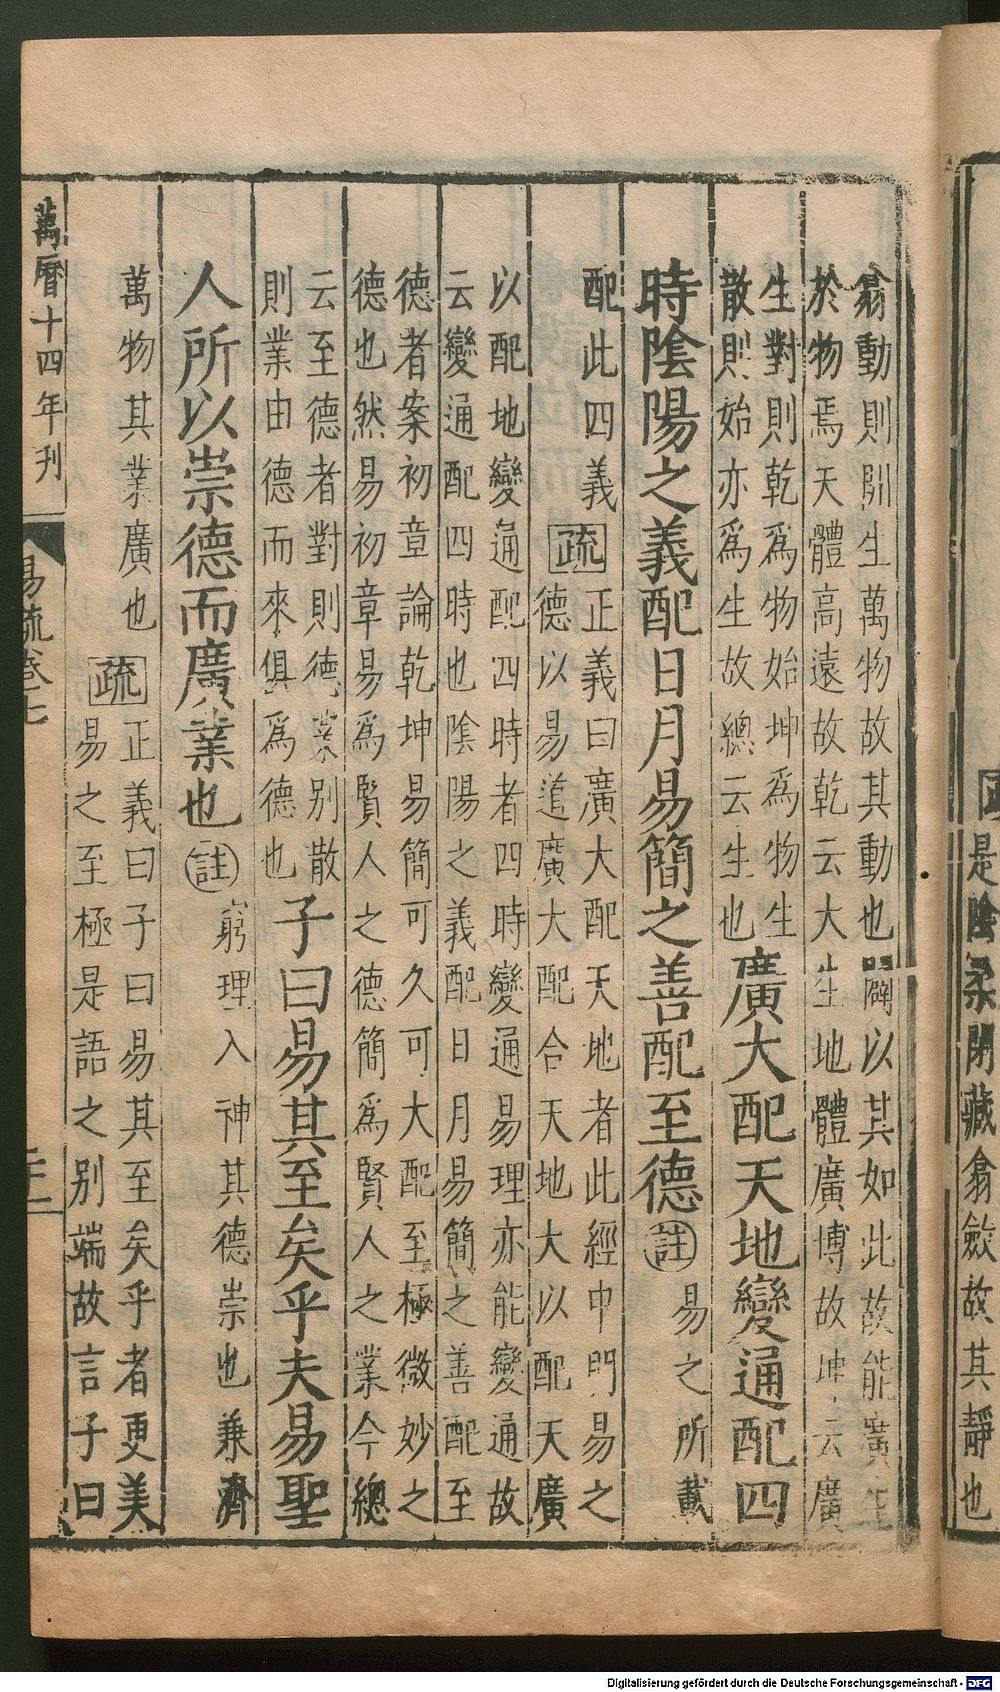 是陰柔閉藏翕斂故其靜也
翕動則闢生萬物故其動也闢以其如此故能廣生
於物焉天體高遠故乾云大生地體廣博故坤云廣
生對則乾爲物始坤爲物生
散則始亦爲生故總云生也
廣大配天地變通配四
時陰陽之義配日月易簡之善配至德
註
易之所載
配此四義
疏
正義曰廣大配天地者此經申明易之
德以易道廣大配合天地大以配天廣
以配地變通配四時者四時變通易理亦能變通故
云變通配四時也陰陽之義配日月易簡之善配至
德者案初章論乾坤易簡可久可大配至極微妙之
德也然易初章易爲賢人之德簡爲賢人之業今總
云至德者對則德業別散
則業由德而來俱爲德也
子曰易其至矣乎夫易聖
人所以崇德而廣業也
註
窮理入神其德崇也兼濟
萬物其業廣也
疏
正義曰子曰易其至矣乎者更美
易之至極是語之別端故言子曰
萬曆十四年刊
易疏卷七
Digitalisierung gefördert durch die Deutsche Forschungsgemeinschaft - DFG